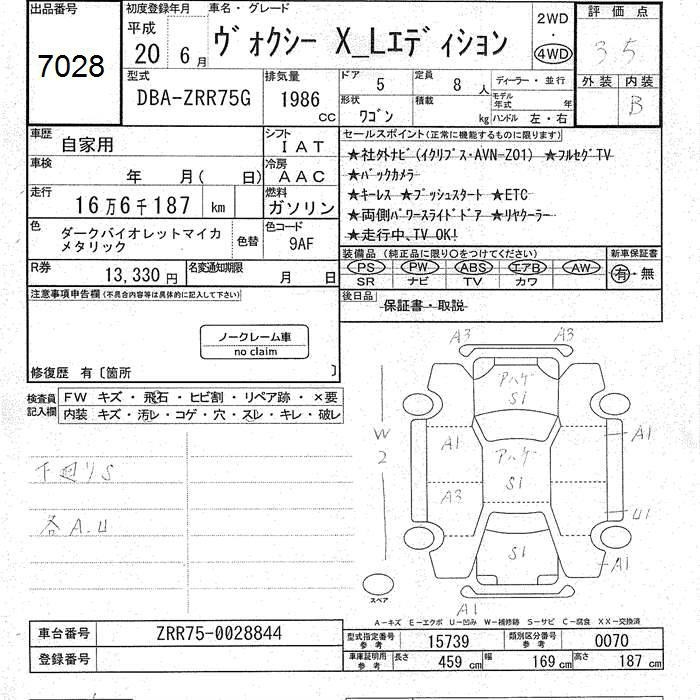 出品番号 初度登録年月 車名・グレード 2WD 評価点
平成 ・
7028 20 6月 ヴォクシー X_Lエディション 4WD 3.5
型式 排気量 ドア 5 定員 8人 ディーラー・並行 外装 内装
DBA-ZRR75G 1986cc 形状 ワゴン 積載 kg モデル年式 年 B
ハンドル 左・右
車歴 自家用 シフト IAT セールスポイント(正常に機能するものに限ります)
車検 年 月( 日) 冷房 AAC ★社外ナビ(イクリプス・AVN-Z01) ★フルセグTV
★バックカメラ
走行 16万6千187 km 燃料 ガソリン ★キーレス ★プッシュスタート ★ETC
★両側パワースライドドア ★リヤクーラー
色 ダークバイオレットマイカメタリック 色替 色コード 9AF ★走行中、TV OK!
装備品(純正品に限り○をつけてください) 新車保証書
R券 13,330円 名変通知期限 月 日 PS PW ABS エアB AW 有・無
SR ナビ TV カワ
注意事項申告欄(不具合内容等は具体的に記入して下さい) 後日品 保証書・取説
ノークレーム車
no claim
修復歴 有〔箇所 〕
検査員記入欄 FW キズ・飛石・ヒビ割・リペア跡・×要
内装 キズ・汚レ・コゲ・穴・スレ・キレ・破レ
A3 A3
アハゲ
S1
W2 A1 A1
下廻りS アハゲ
S1
A3
各A.U U1
S1
A1
スペア A1
A-キズ E-エクボ U-凹み W-補修跡 S-サビ C-腐食 XX-交換済
車台番号 ZRR75-0028844 型式指定番号 参考 15739 類別区分番号 参考 0070
登録番号 車庫証明用 参考 長さ 459cm 幅 169cm 高さ 187cm